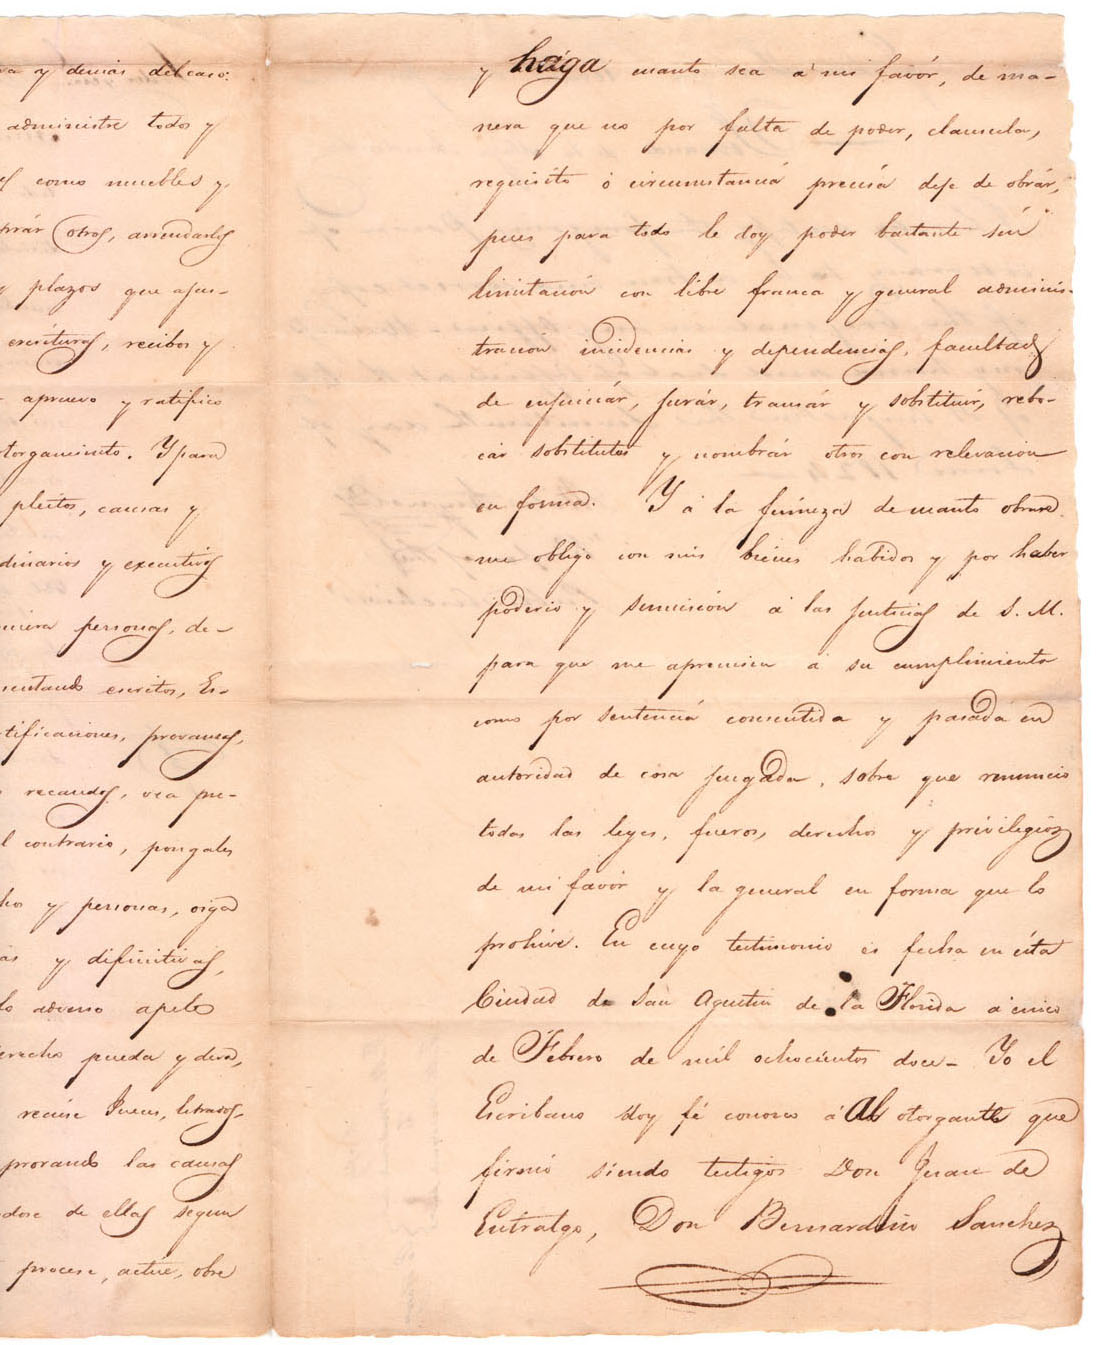 va y demás del caso:
administre todos y
como muebles y
prár otros, arrendarlos
y plazos que ajus-
escrituras, recibos y
apruevo y ratifico
otorgamiento. Y para
pleitos, causas y
dinarios y executivos
personas, de-
sentando escritos, Es-
tificaciones, provansas,
recaudos, vea pu-
l contrario, pongales
hos y personas, oigad
as y difinitivas,
lo adverso apele
erecho pueda y deva,
recúse Jueces, letrados,
prorando las causas
dose de ellas segun
procese, actúe, obre
y haga cuanto sea á mi favór, de ma-
nera que no por falta de poder, clausula,
requisito ó circumstanciá precisa deje de obrár,
pues para todo le doy poder bastante sin
limitación con libre franca y general adminis-
tracion incidencias y dependencias, facultad
de enjuiciár, jurár, transár y sobstituir, rebo-
cár sobstitutos y nombrár otros con relevacion
en forma. Y á la firmeza de cuanto obrare
me obligo con mis biénes habidos y por haber
poderio y sumision á las justicias de S. M.
para que me apremien á su cumplimiento
como por sentenciá consentida y pasada en
autoridad de cosa juzgada, sobre que renuncio
todas las leyes, fueros, derechos y privilegios
de mi favór y la general en forma que lo
prohive. En cuyo testimonio es fecha en ésta
Ciudad de San Agustin de la Florida á cinco
de Febrero de mil ochociéntos doce- Yo el
Escribano doy fé conosco á Al otorgante que
firmó siendo testigos Don Juan de
Entralgo, Don Bernardino Sanchez